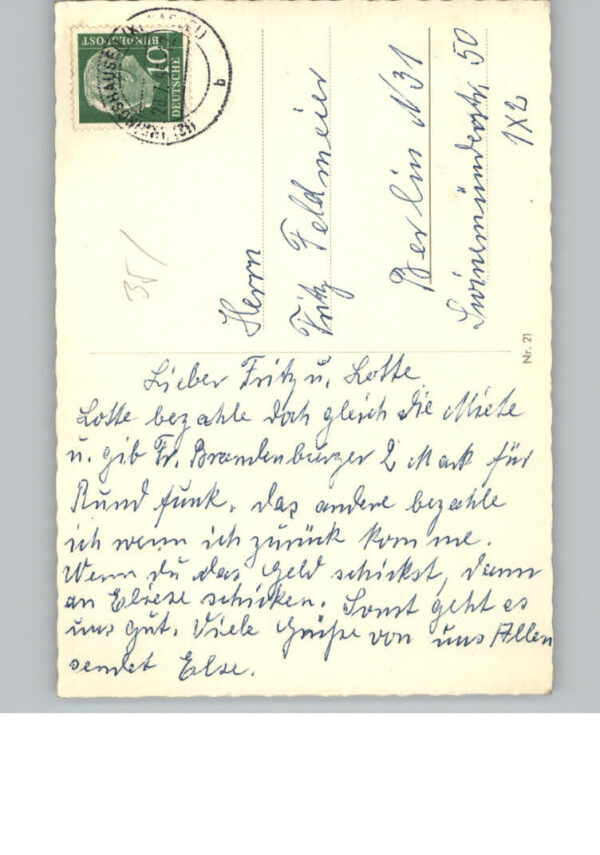 DEUTSCHE
BUNDESPOST
10
b
35/
Herrn
Fritz Feldmeier
Berlin N31
Swinemünderstr. 50
1X2
Nr. 21
Lieber Fritz u. Lotte
Lotte bezahle doch gleich die Miete
u. gib Fr. Brandenburger 2 Mark für
Rundfunk. das andere bezahle
ich wenn ich zurück komme.
Wenn du das Geld schickst, dann
an Eliese schicken. Sonst geht es
uns gut. Viele Grüße von uns Allen
sendet Else.